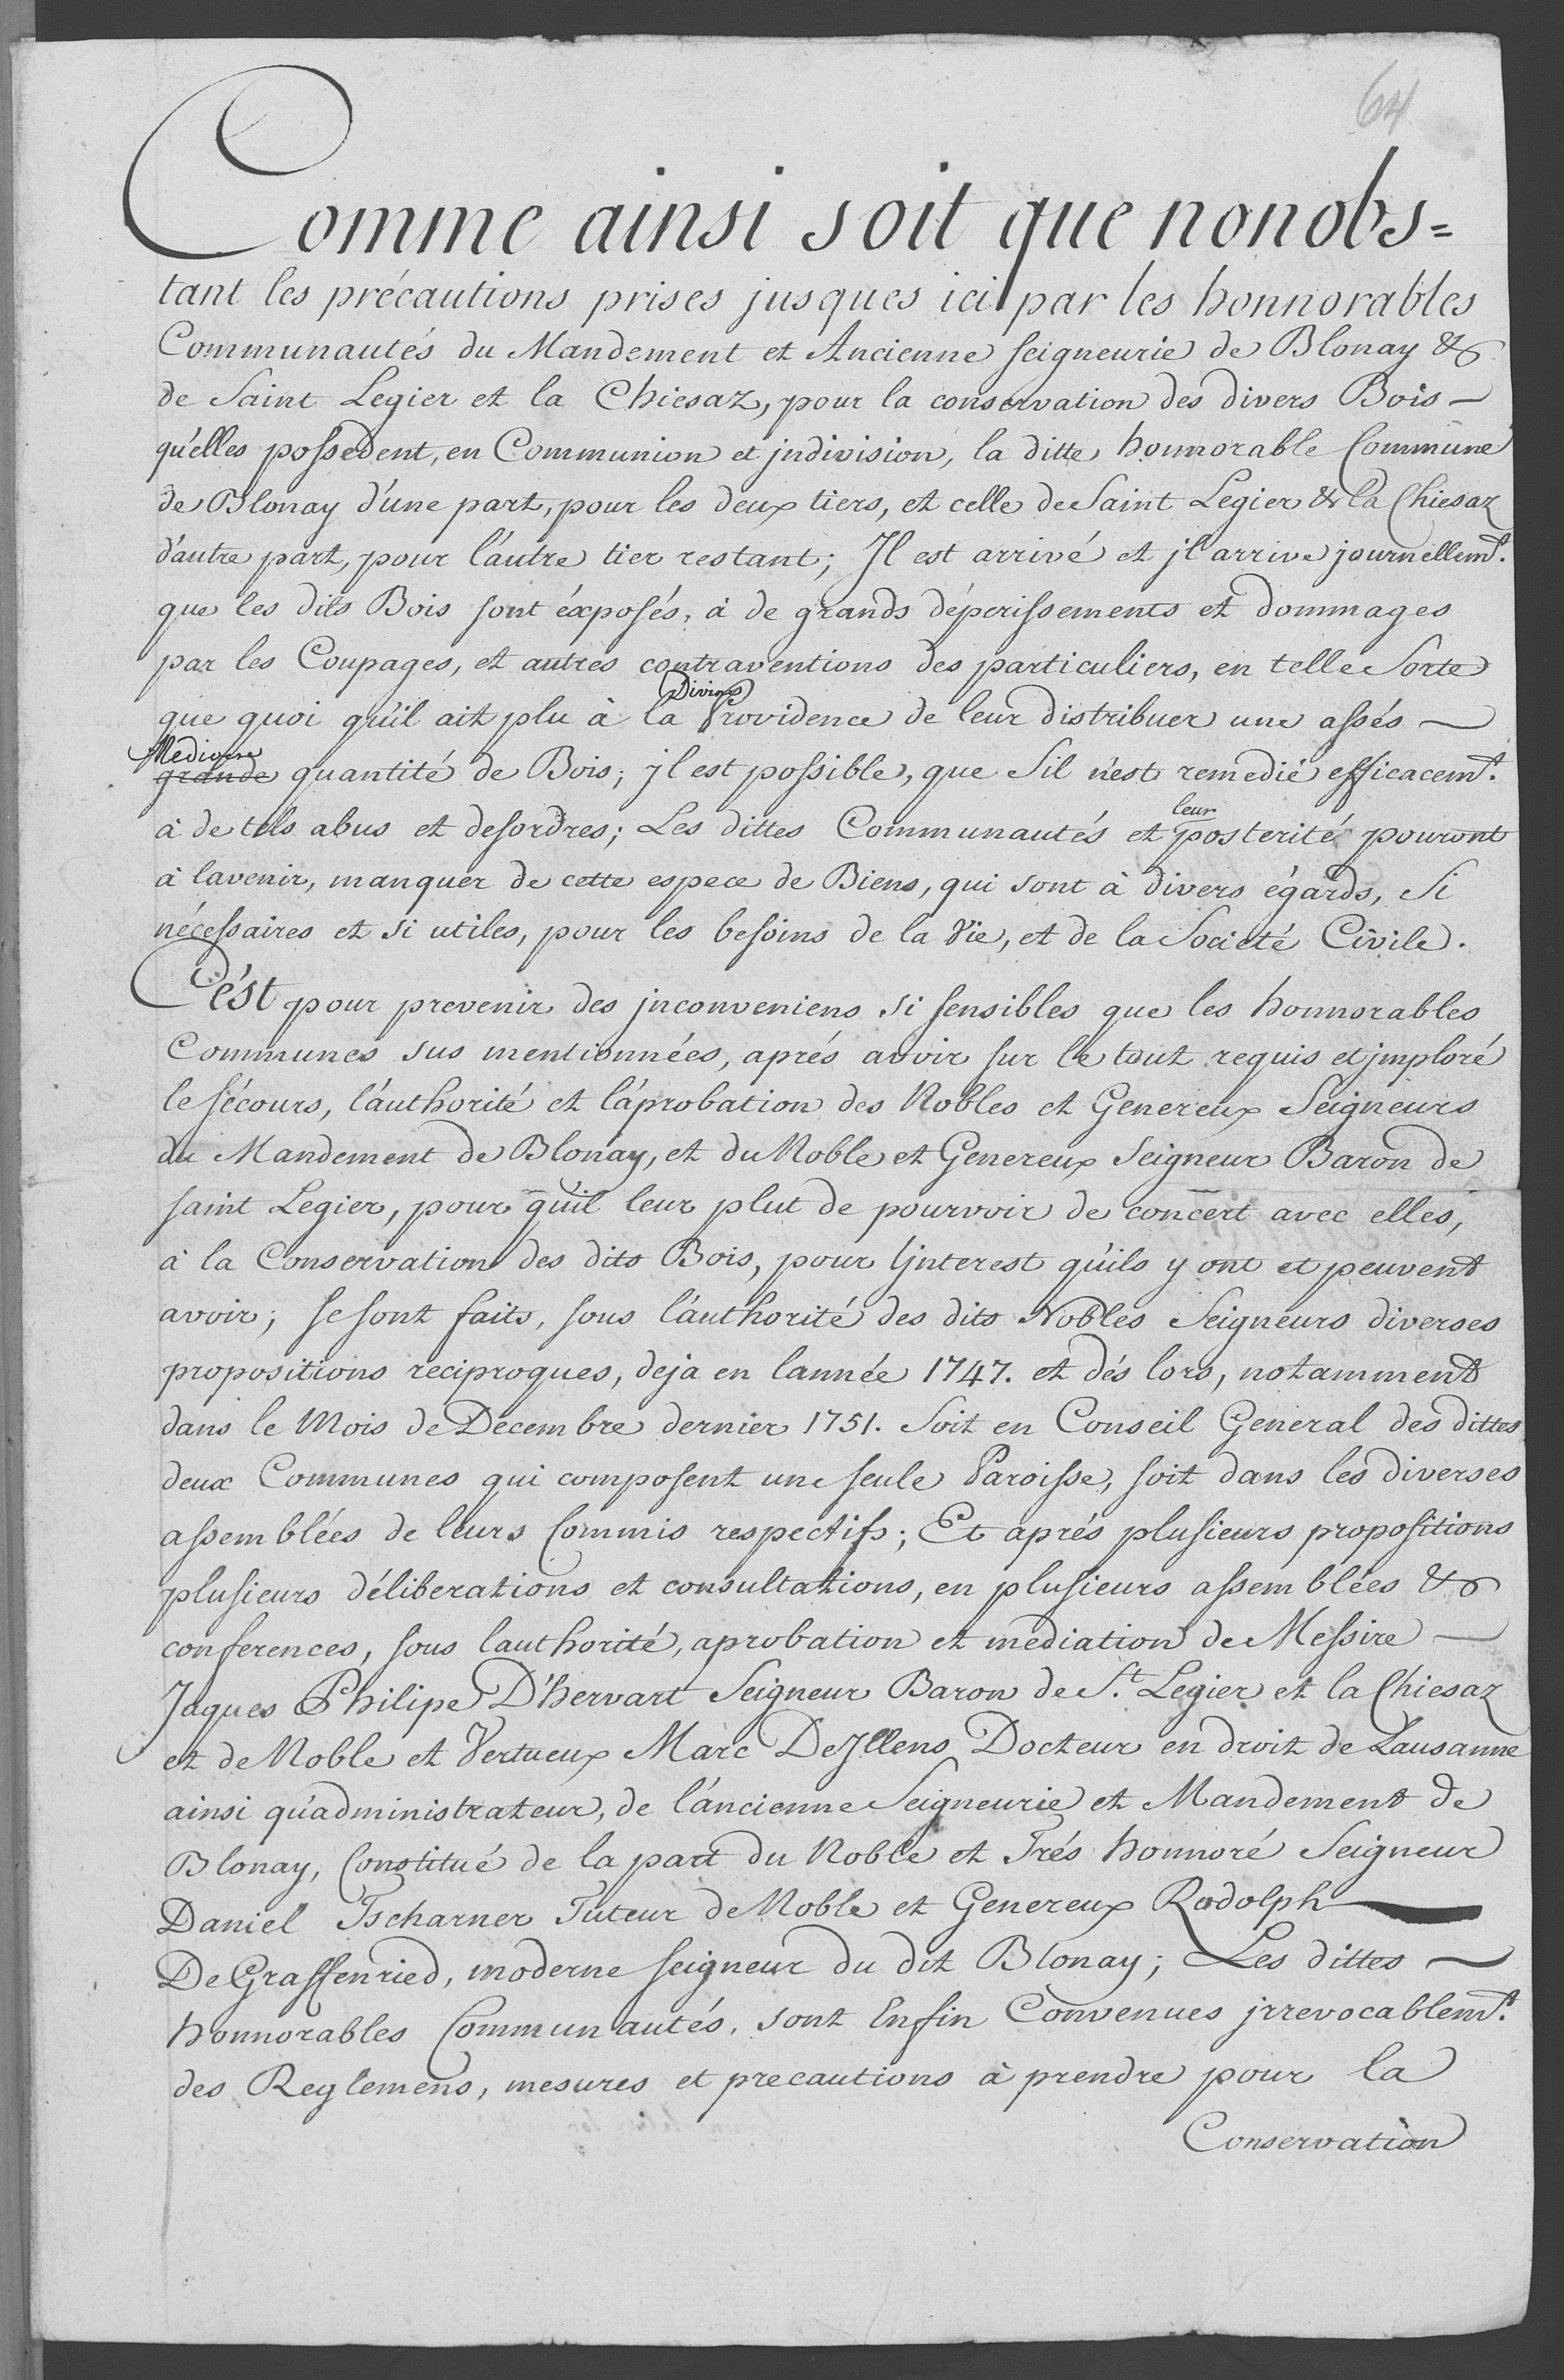 64
Comme ainsi soit que nonobs=
tant les précautions prises jusques ici par les honnorables
Communautés du Mandement et Ancienne seigneurie de Blonay &
de Saint Legier et la Chiesaz, pour la conservation des divers Bois –
qu'elles possedent, en Communion et jndivision, la ditte honnorable Commune
de Blonay d'une part, pour les deux tiers, et celle de Saint Legier & la Chiesaz
d'autre part, pour l'autre tier restant; Jl est arrivé et jl arrive journellemt.
que les dits Bois sont éxposés, à de grands déperissements et dommages
par les Coupages, et autres contraventions des particuliers, en telle Sorte
Divine
que quoi qu'il ait plu à la Providence de leur distribuer une assés –
Mediocre
grande quantité de Bois; jl est possible, que S'il n'est remedié efficacemt.
leur
à de tels abus et desordres; Les dittes Communautés et posterité pouront
à lavenir, manquer de cette espece de Biens, qui sont à divers égards, Si
nécessaires et si utiles, pour les besoins de la Vie, et de la Societé Civile.
C'ést pour prevenir des jnconveniens si sensibles que les honnorables
Communes sus mentionnées, aprés avoir sur le tout requis et jmploré
le sécours, l'authorité et l'áprobation des Nobles et Genereux Seigneurs
du Mandement de Blonay, et du Noble et Genereux Seigneur Baron de
saint Legier, pour qu'il leur plut de pourvoir de concert avec elles,
à la Conservation des dits Bois, pour l'jnterest qu'ils y ont et peuvent
avoir; se sont faits, sous l'authorité des dits Nobles Seigneurs diverses
propositions reciproques, deja en lannée 1747. et dés lors, notamment
dans le Mois de Decembre dernier 1751. Soit en Conseil General des dittes
deux Communes qui composent une seule Paroisse, soit dans les diverses
assemblées de leurs Commis respectifs; Et aprés plusieurs propositions
plusieurs déliberations et consultations, en plusieurs assemblées &
conferences, sous lauthorité, aprobation et mediation de Messire –
Jaques Philipe D'hervart Seigneur Baron de St. Legier et la Chiesaz
et de Noble et Vertueux Marc DeJllens Docteur en droit de Lausanne
ainsi qu'administrateur, de l'áncienne Seigneurie et Mandement de
Blonay, Constitué de la part du Noble et Trés honnoré Seigneur
Daniel Tscharner Tuteur de Noble et Genereux Rodolph –
De Graffenried, moderne seigneur du dit Blonay; Les dittes –
honnorables Communautés, sont Enfin Convenues jrrevocablemt.
des Reglemens, mesures et precautions à prendre pour la
Conservation